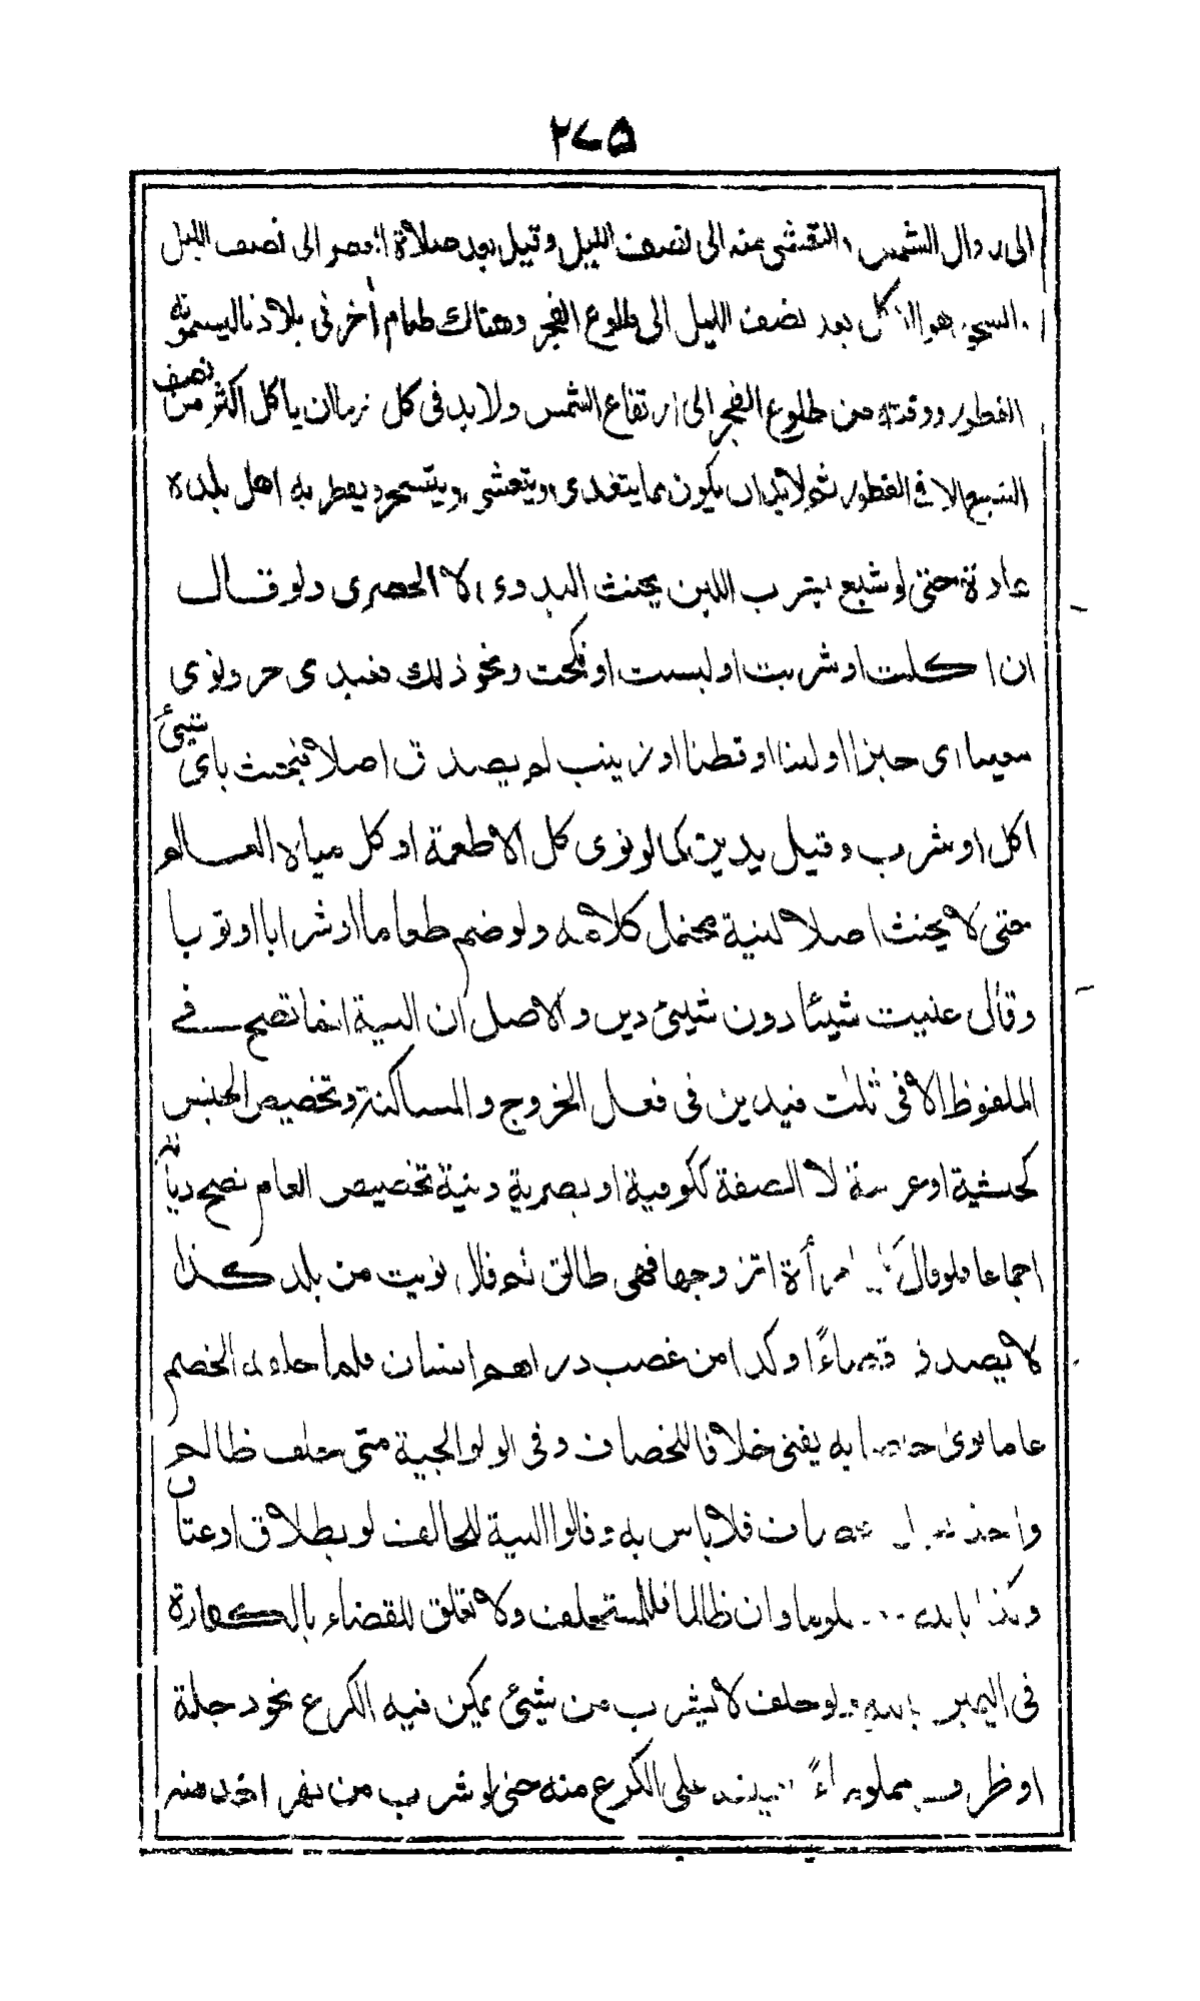 ٢٧٥
الى زوال الشمس والتعشى منه الى نصف الليل وقيل بعد صلاة العصر الى نصف الليل
والسحور هو الاكل بعد نصف الليل الى طلوع الفجر وهناك طعام أخر فى بلادنا يسمونه
الفطور ووقته من طلوع الفجر الى ارتفاع الشمس ولا بد فى كل زمان ان ياكل اكثر من نصف
الشبع الا فى الفطور ثم لا بد ان يكون مما يتغدى ويتعشى ويتسحر ويفطر به اهل بلده
عادة حتى لو شبع بشرب اللبن يحنث البدوى لا الحضرى ولو قال
ان اكلت او شربت او لبست او نكحت ونحو ذلك فعبدى حر ونوى
معينا اى خبزا او لبنا او قطنا او زينب لم يصدق اصلا فيحنث باى شيئ
اكل او شرب وقيل يدين كما لو نوى كل الاطعمة او كل مياه العالم
حتى لا يحنث اصلا لنية محتمل كلامه ولو ضم طعاما او شرابا او ثوبا
وقال عنيت شيئا دون شيئ دين والاصل ان النية انما تصح فى
الملفوظ الا فى ثلث فيدين فى فعل الخروج والمساكنة وتخصيص الجنس
كحبشية او عربية لا الصفة ككوفية او بصرية ونية تخصيص العام تصح ديانة
اجماعا فلو قال كل امرأة اتزوجها فهى طالق ثم قال نويت من بلد كذا
لا يصدق قضاءً وكذا من غصب دراهم انسان فلما حلفه الخصم
عاما نوى خاصا به يفتى خلافا للخصاف وفى الولوالجية متى حلف ظالم
واخذ بقول الخصاف فلا باس به وقالوا النية للحالف لو بطلاق او عتاق
وكذا بالله لو مظلوما وان ظالما فللمستحلف ولا تعلق للقضاء بالكفارة
فى اليمين بالله ولو حلف لا يشرب من شيئ يمكن فيه الكرع نحو دجلة
او ظرف مملوء ماءً فيمينه على الكرع منه حتى لو شرب من نهر اخذ منه